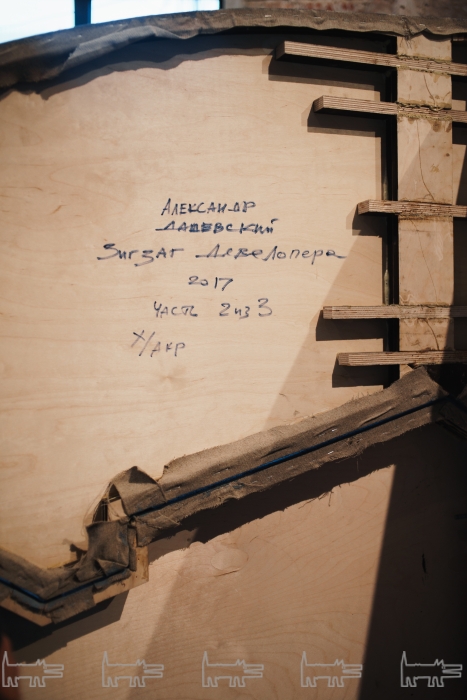 Александр
Дашевский
Зигзаг Девелопера
2017
Часть 2 из 3
х/акр